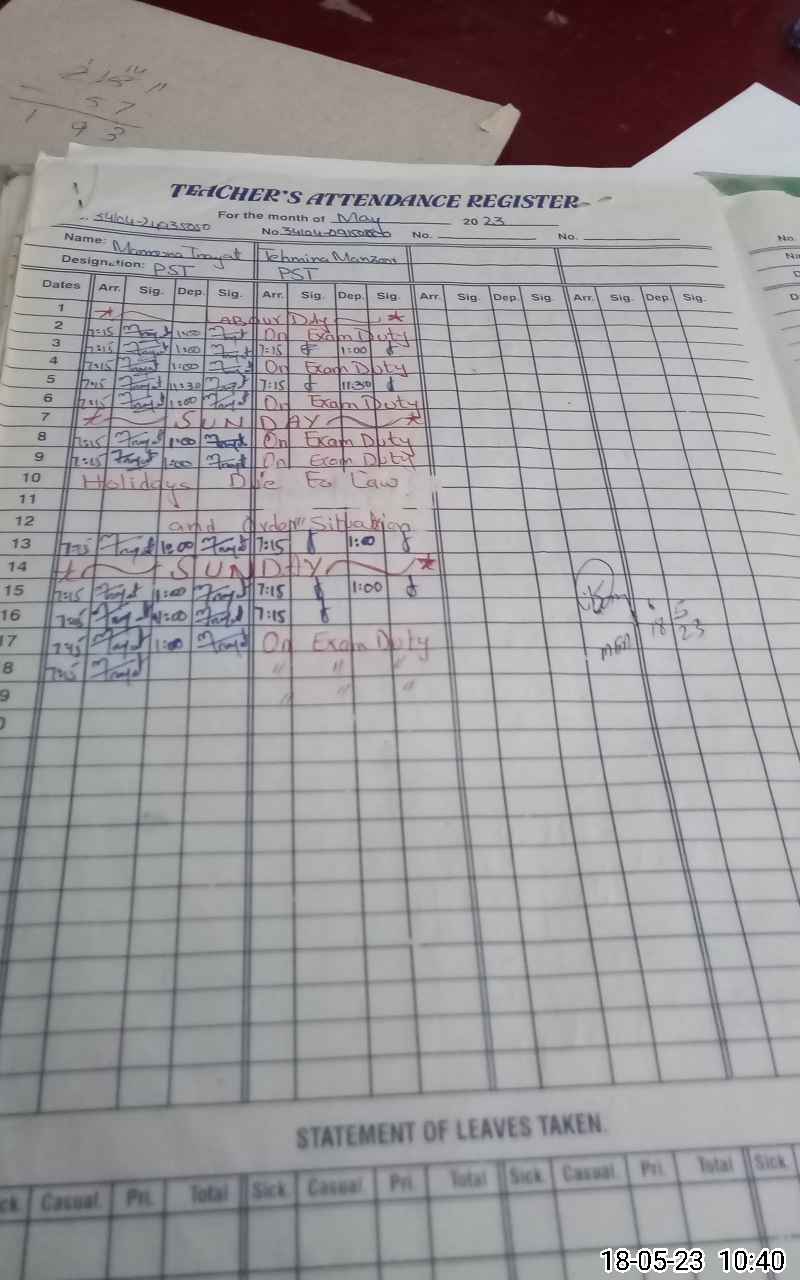 2 15 14 11
- 57
1 9 3
TEACHER'S ATTENDANCE REGISTER
For the month of May 2023
No. No. No.
Name: Tehmina Manzoor
Designation: PST PST
Dates Arr. Sig. Dep. Sig. Arr. Sig. Dep. Sig. Arr. Sig. Dep. Sig. Arr. Sig. Dep. Sig.
1 ABOUR DAY
2 7:15 1:00 On Exam Duty
3 7:15 1:00 7:15 1:00
4 7:15 1:00 On Exam Duty
5 7:15 11:30 7:15 11:30
6 7:15 1:00 On Exam Duty
7 SUNDAY
8 7:15 1:00 On Exam Duty
9 7:15 1:00 On Exam Duty
10 Holidays Due to Law
11
12 and order Situation
13 7:15 1:00 7:15 1:00
14 SUNDAY
15 7:15 1:00 7:15 1:00
16 7:15 1:00 7:15
17 7:15 1:00 On Exam Duty
8 7:15 " " "
9 " " "
18 5 23
STATEMENT OF LEAVES TAKEN.
ck Casual. Pri. Total Sick Casual. Pri. Total Sick Casual. Pri. Total Sick
18-05-23 10:40